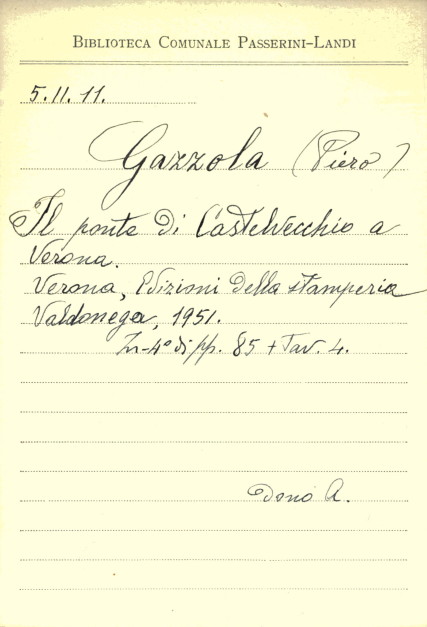 BIBLIOTECA COMUNALE PASSERINI-LANDI
5.11.11.
Gazzola (Piero)
Il ponte di Castelvecchio a
Verona.
Verona, Edizioni della stamperia
Valdonega, 1951.
In-4° di pp. 85 + Tav. 4.
Dono A.